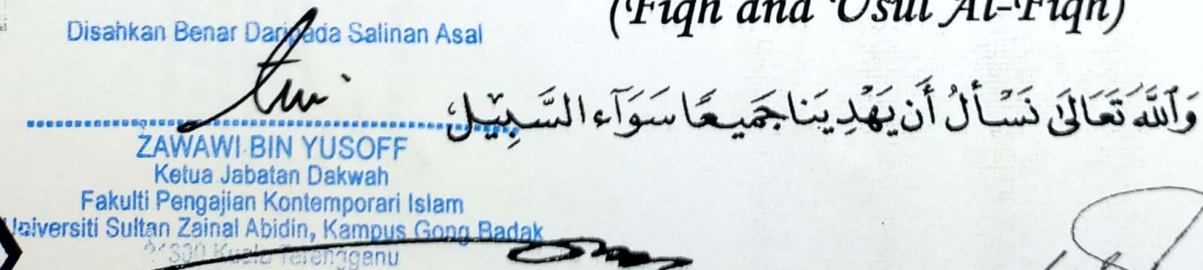 (Fiqh and Usul Al-Fiqh)
Disahkan Benar Daripada Salinan Asal
وَاللَّهَ تَعَالَىٰ نَسْأَلُ أَن يَهْدِيَنَا جَمِيعًا سَوَآءَ السَّبِيلِ،
ZAWAWI BIN YUSOFF
Ketua Jabatan Dakwah
Fakulti Pengajian Kontemporari Islam
Universiti Sultan Zainal Abidin, Kampus Gong Badak
21300 Kuala Terengganu